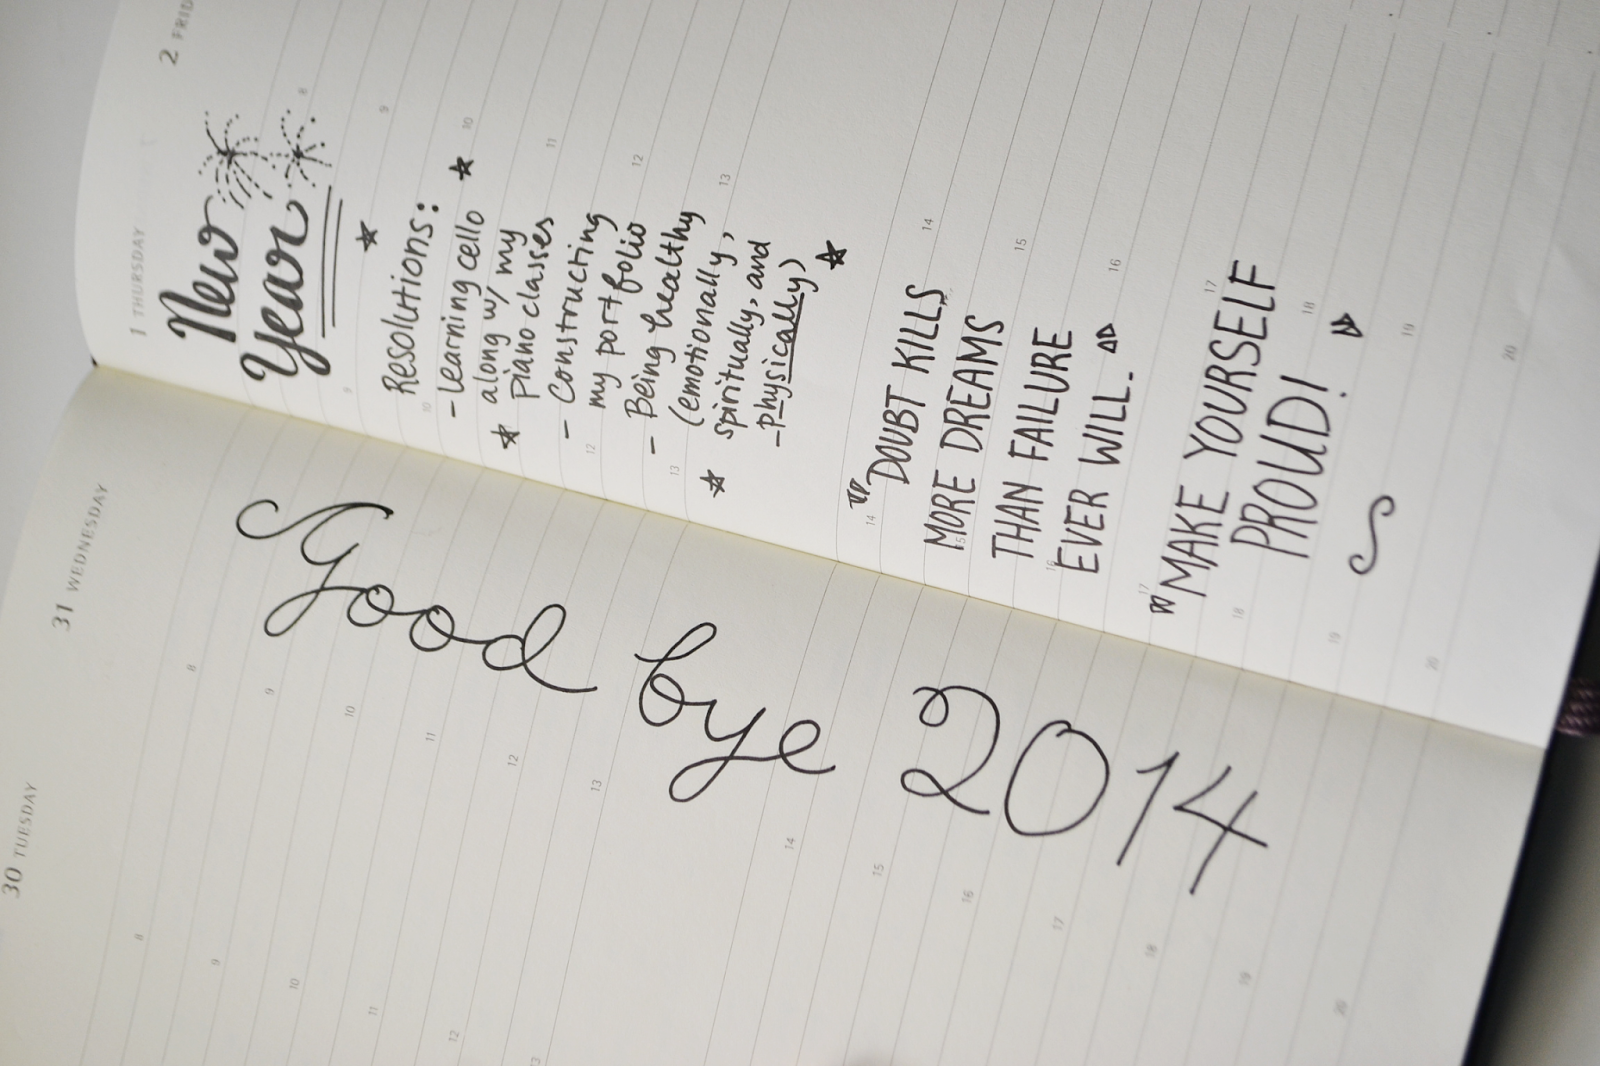 30 TUESDAY
8
9
10
11
12
13
14
15
16
17
18
19
20
31 WEDNESDAY
8
9
10
11
12
13
Good bye 2014
1 THURSDAY
New
Year
Resolutions:
- Learning cello
along w/ my
piano classes
- Constructing
my portfolio
- Being healthy
(emotionally,
spiritually, and
-physically)
"DOUBT KILLS
MORE DREAMS
THAN FAILURE
EVER WILL."
"MAKE YOURSELF
PROUD!"
9
10
12
13
14
15
16
17
18
19
20
2 FRID
8
9
10
11
12
13
14
15
16
17
18
19
20